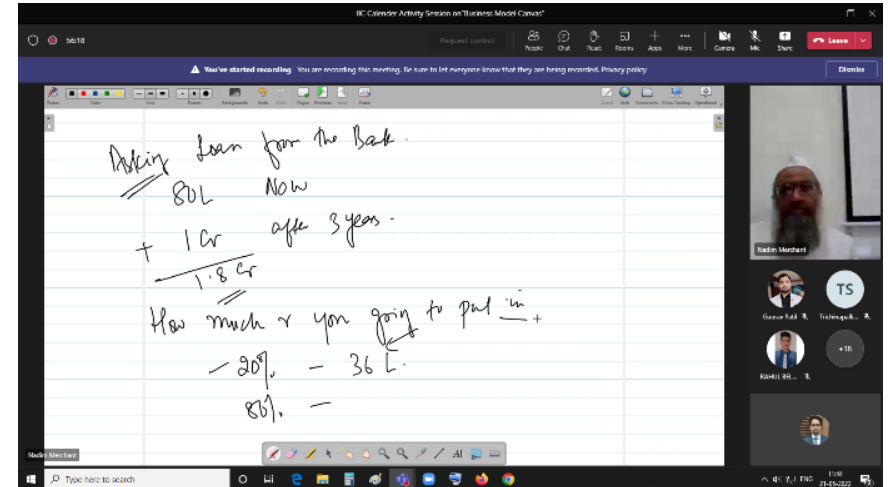 IIC Calender Activity Session on "Business Model Canvas"
56:18
Request control
People Chat React Rooms Apps More Camera Mic Share Leave
You've started recording You are recording this meeting. Be sure to let everyone know that they are being recorded. Privacy policy
Dismiss
Asking Loan from the Bank.
80L Now
+ 1 Cr after 3 years.
1.8 Cr
How much r you going to put in
- 20% - 36 L.
80% -
Nadim Merchant
Gaurav Patil
TS
+18
Nadim Merchant
Type here to search
ENG
21-05-2022